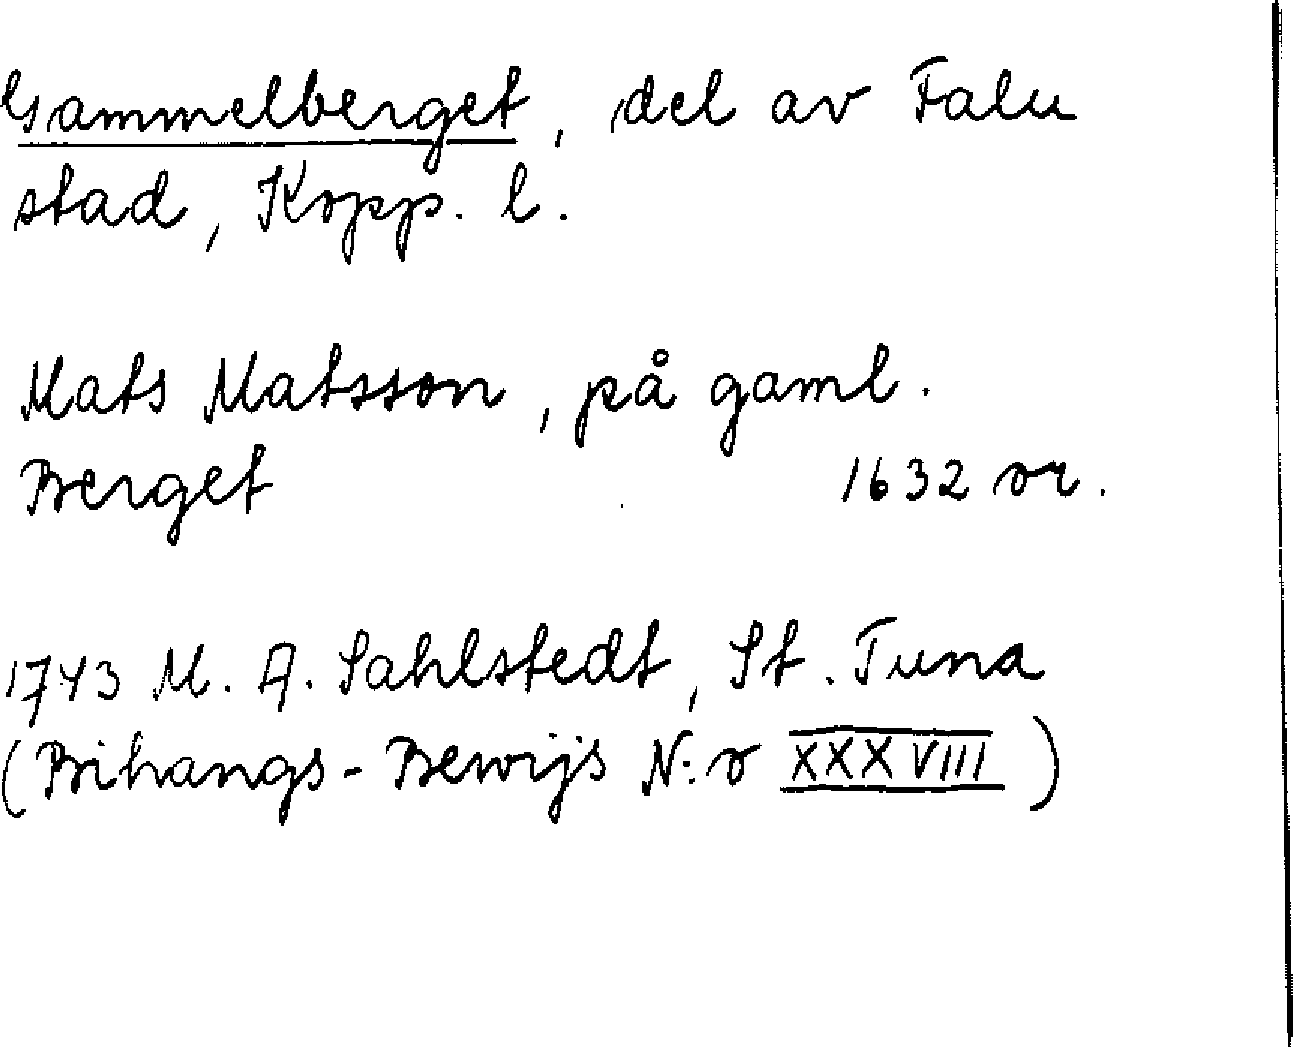 Gammelberget, del av Falu
stad, Kopp. l.
Mats Matsson, på gaml.
Berget 1632 or.
1743 M. A. Sahlstedt, St. Tuna
(Bihangs-Bewijs N:o XXXVIII)